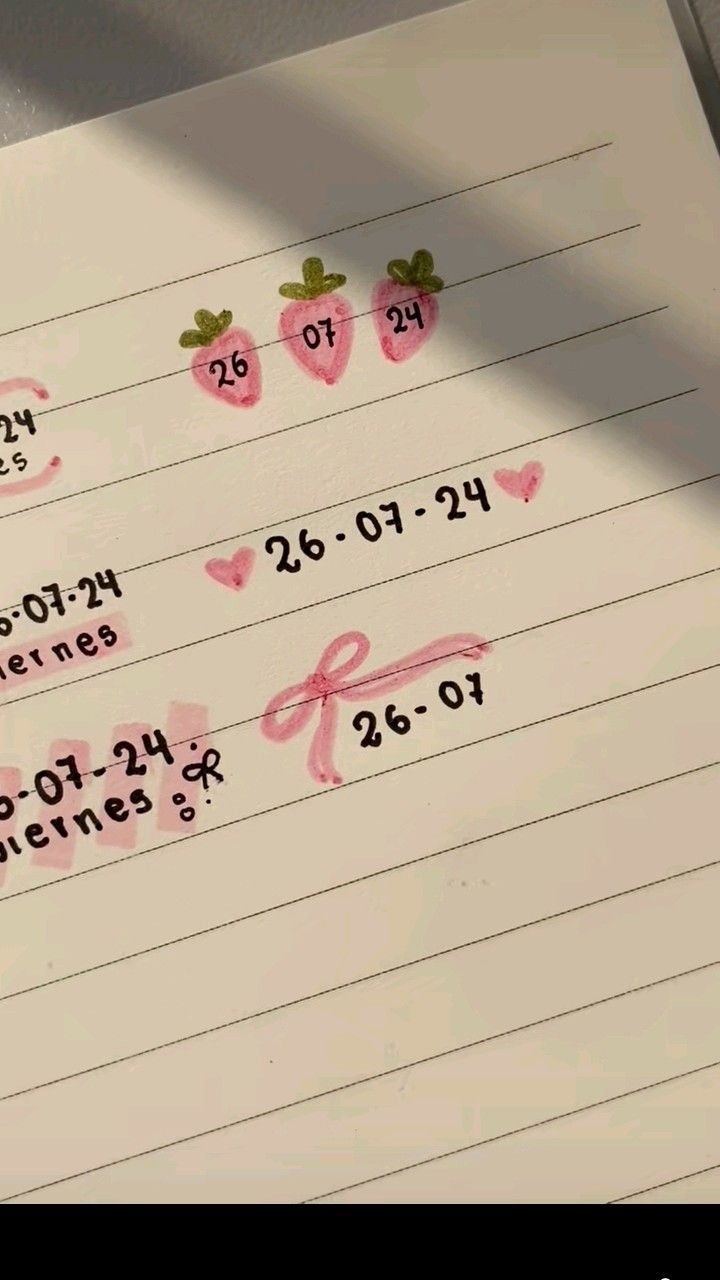 26 07 24
24
es
26.07.24
07.24
iernes
26-07
07-24
iernes